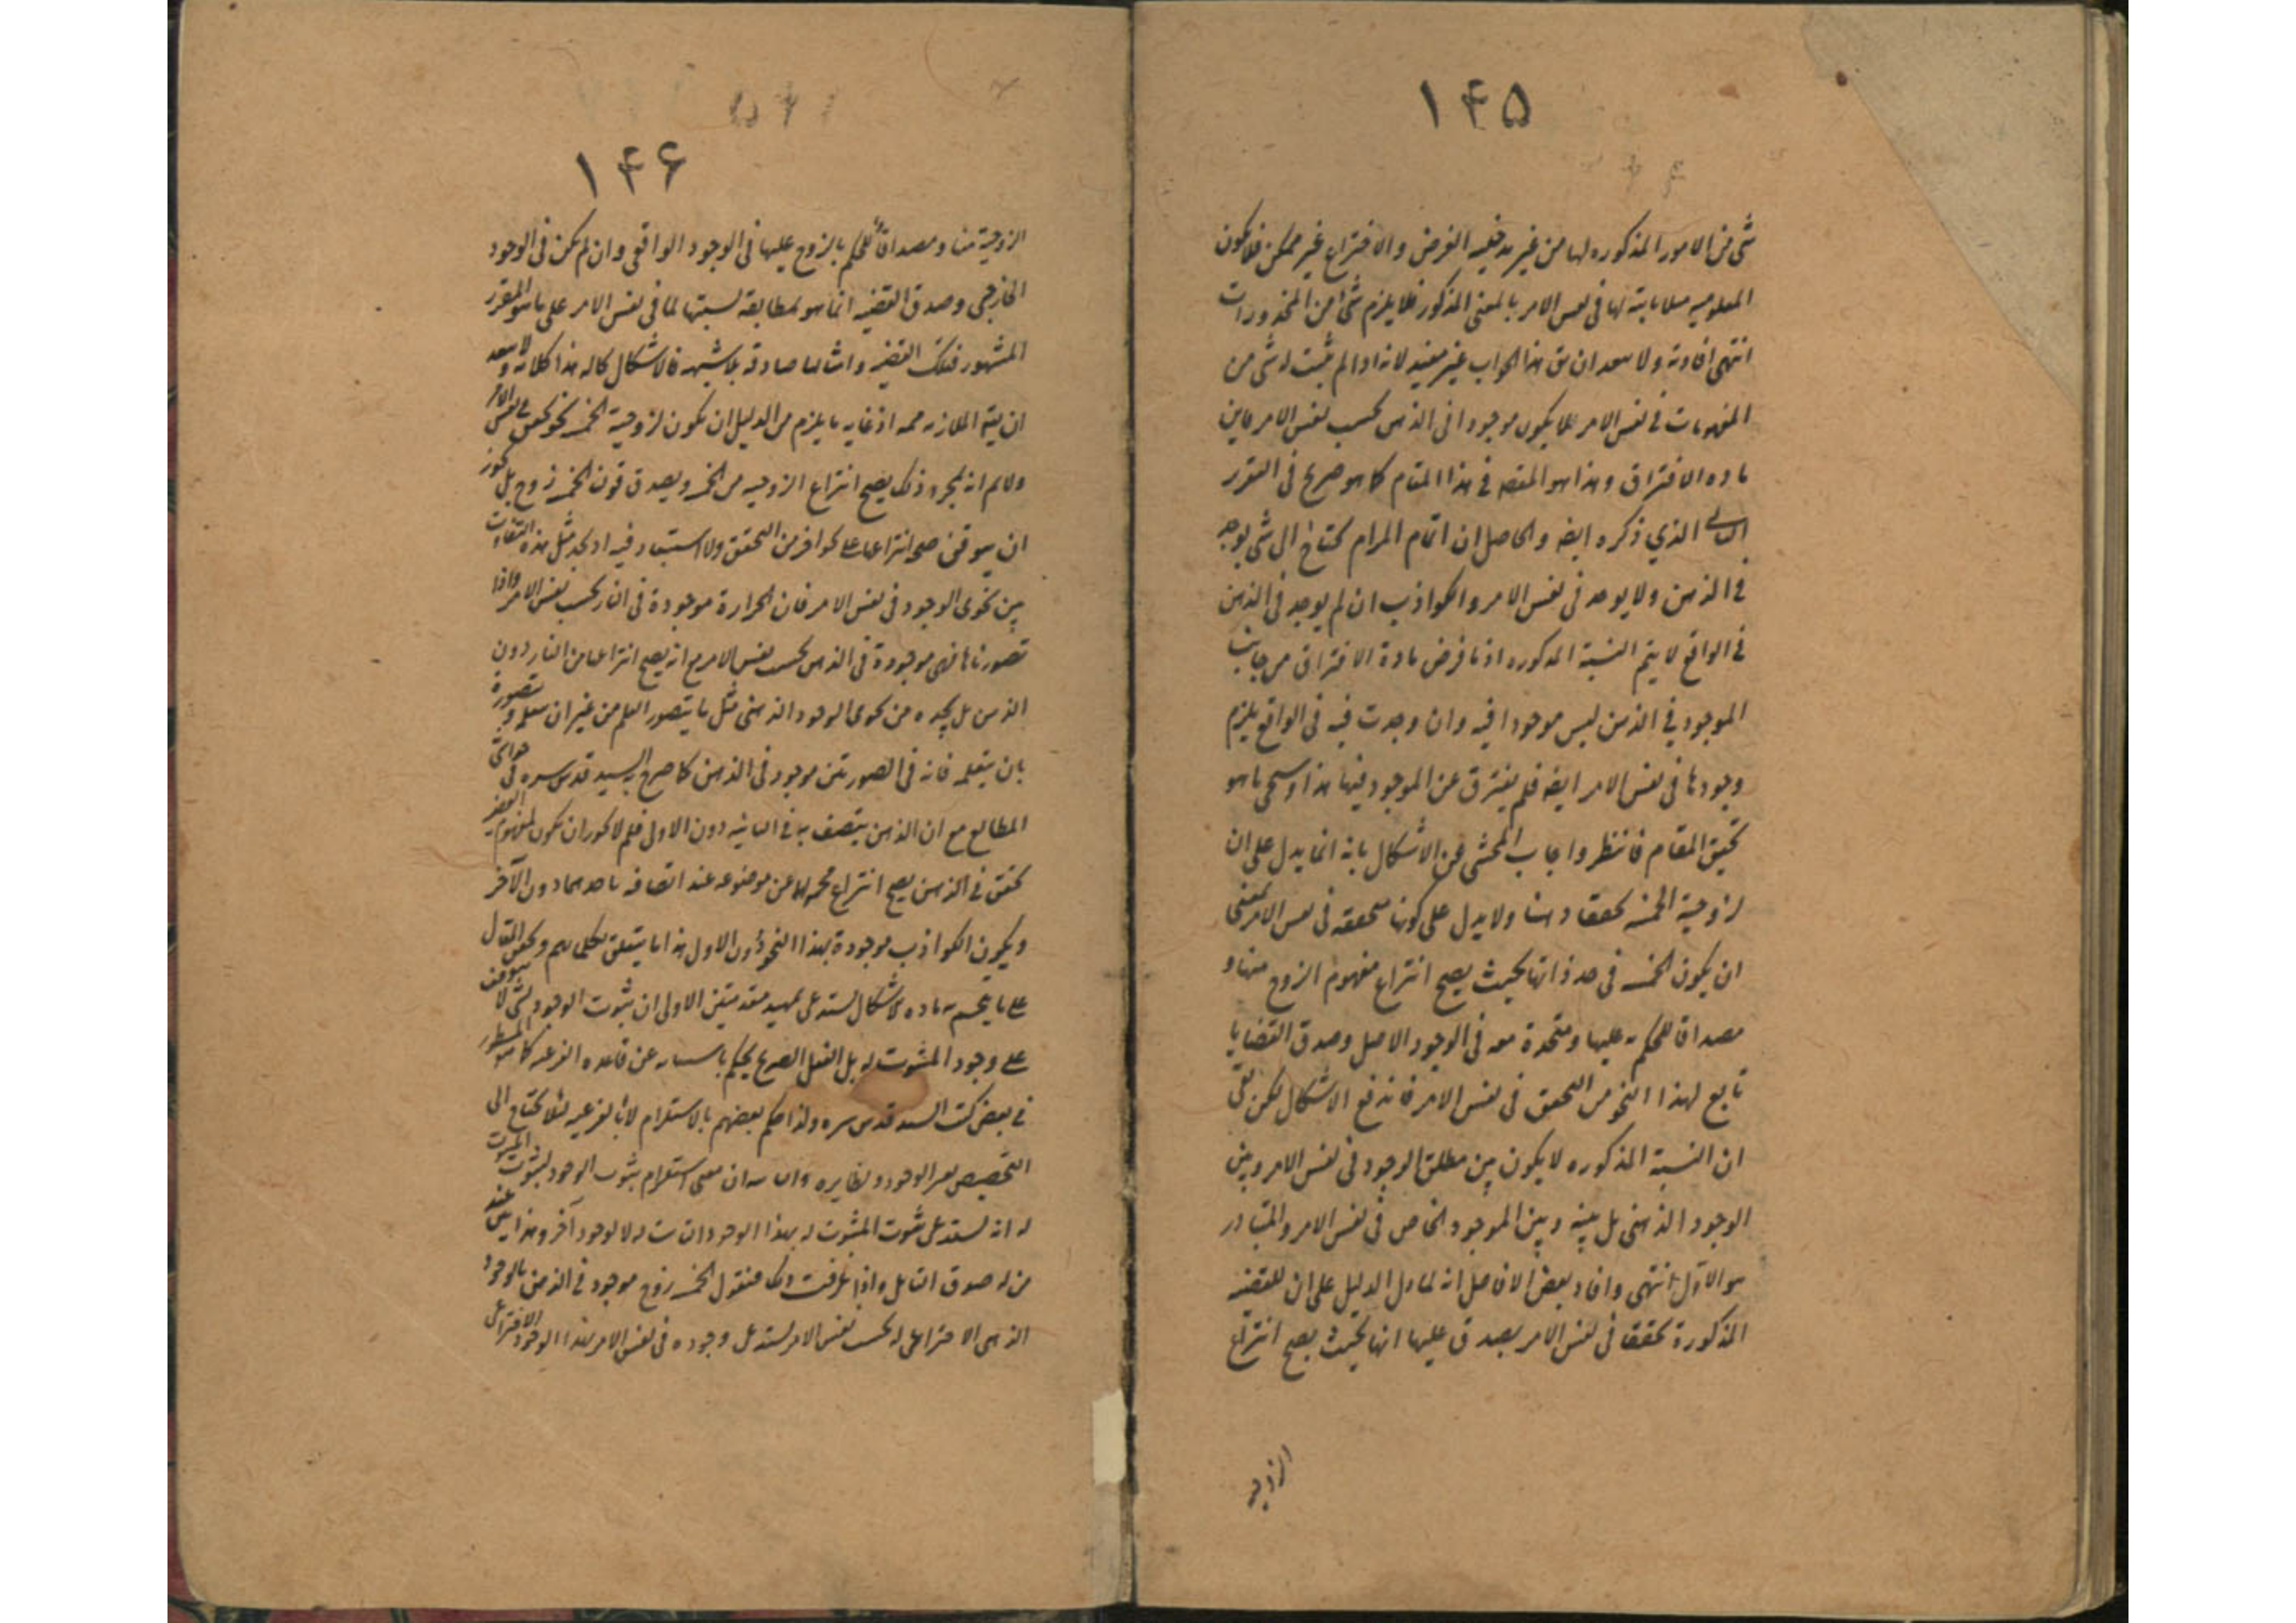 ۱۴۵
شئ من الامور المذكوره لها من غير مدخليه الفرض والاختراع غير ممكن فلا يكون
المعلوميه ثابتة لها في نفس الامر بالمعنى المذكور فلا يلزم شئ من المحذورات
انتهى افادته ولا بعد ان يق هذا الجواب غير مفيد لانه اذا لم يثبت له شئ من
المفهومات في نفس الامر فلا يكون موجودا في الذهن بحسب نفس الامر فاين
ماده الافتراق وهذا هو المقصه في هذا المقام كما هو صريح في التقرير
الذي ذكره ايضه والحاصل ان اتمام المرام يحتاج الى شئ يوجد
في الذهن ولا يوجد في نفس الامر والكواذب ان لم يوجد في الذهن
في الواقع لا يتم النسبة المذكوره اذ ما فرض مادة الافتراق من جانب
الموجود في الذهن ليس موجودا فيه وان وجدت فيه في الواقع يلزم
وجودها في نفس الامر ايضه فلم يفترق عن الموجود فيها هذا وسيجئ ما هو
تحقيق المقام فانتظر واجاب المحشى عن الاشكال بانه انما يدل على ان
لزوجية الخمسه تحققا ذهنا ولا يدل على كونها متحققه في نفس الامر بمعنى
ان يكون الخمسه في حد ذاتها بحيث يصح انتزاع مفهوم الزوج منها و
مصداقا للحكم به عليها ومتحدة معه في الوجود الاصل وصدق القضايا
تابع لهذا النحو من التحقق في نفس الامر فاندفع الاشكال لكن بقى
ان النسبة المذكوره لا يكون بين مطلق الوجود في نفس الامر وبين
الوجود الذهنى بل بينه وبين الموجود الخاص في نفس الامر والمتبادر
هو الاول انتهى وافاد بعض الافاضل انه لما دل الدليل على ان للقضيه
المذكورة تحققا في نفس الامر يصدق عليها انها بحيث يصح انتزاع
الزوجية
۱۴۶
الزوجية منها ومصداقا للحكم بالزوج عليها في الوجود الواقعى وان لم يكن في الوجود
الخارجى وصدق القضيه انما هو لمطابقة نسبتها لما في نفس الامر على ما هو المقرر
المشهور فتلك القضيه وامثالها صادقه بلا شبهه فالاشكال بحاله هذا كلامه ولا يبعد
ان يق الملازمه ممه اذ غايه ما يلزم من الدليل ان يكون لزوجية الخمسه نحو تحقق في نفس الامر
ولا نم انه بمجرد ذلك يصح انتزاع الزوجيه من الخمسه ويصدق قولنا الخمسه زوج بل يجوز
ان يتوقف صحه انتزاعها على نحو آخر من التحقق ولا استبعاد فيه اذ نجد مثل هذه التفاوت
بين نحوى الوجود في نفس الامر فان الحرارة موجودة في النار بحسب نفس الامر واذا
تصورناها فهى موجودة في الذهن بحسب نفس الامر مع انه يصح انتزاعها من النار دون
الذهن بل نجده من نحوى الوجود الذهنى مثل ما يتصور العلم من غير ان يتعلم وتصوره
بان يتعلمه فانه في الصورتين موجود في الذهن كما صرح به السيد قدس سره في حواشى
المطالع مع ان الذهن يتصف به في الثانيه دون الاولى فلم لا يجوز ان يكون لمفهوم القضيه
تحقق في الذهن يصح انتزاع محمولها عن موضوعه عند اتصافه باحدهما دون الآخر
ويكون الكواذب موجودة بهذا النحو دون الاول هذا ما يتعلق بكلماتهم وتحقيق المقال
على ما ينحسم به ماده الاشكال يستدعى تمهيد مقدمتين الاولى ان ثبوت الوجود لشئ لا يتوقف
على وجود المثبوت له بل العقل الصريح يحكم باستثنائه عن قاعده الفرعيه كما هو المسطور
في بعض كتب السيد قدس سره ولذا حكم بعضهم بالاستلزام لا بالفرعيه لئلا يحتاج الى
التخصيص بغير الوجود ونظايره والثانيه ان معنى استلزام ثبوت الوجود لثبوت المثبوت
له انه يستدعى ثبوت المثبوت له بهذا الوجود الثابت له لا لوجود آخر وهذا بين عند
من له صدق التامل واذا عرفت ذلك فنقول الخمسه زوج موجود في الذهن بالوجود
الذهنى الاختراعى له بحسب نفس الامر يستدعى وجوده في نفس الامر بهذا الوجود الاختراعى